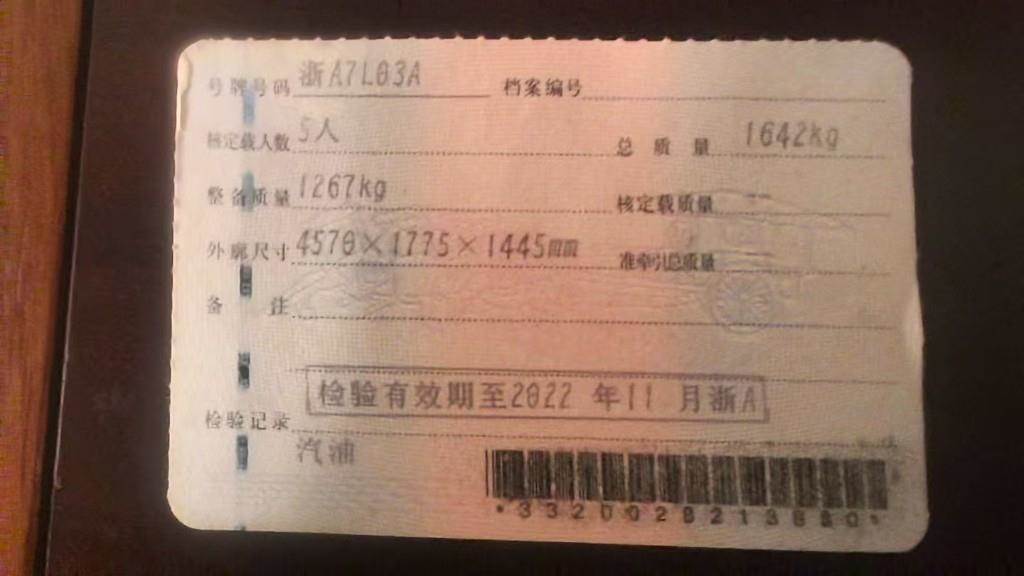 号牌号码 浙A7L03A 档案编号
核定载人数 5人 总质量 1642kg
整备质量 1267kg 核定载质量 --
外廓尺寸 4570×1775×1445mm 准牵引总质量
备注
检验有效期至2022年11月浙A
检验记录
汽油